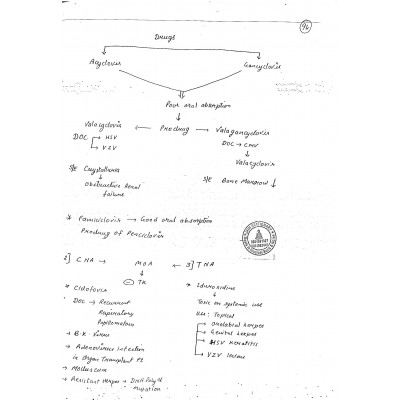 96
Drugs
Acyclovir Gancyclovir
Poor oral absorption
Valacyclovir ← Prodrug → Valagancyclovir
DOC → HSV DOC → CMV
→ VZV
Valacyclovir
S/E Crystalluria S/E Bone Marrow ↓
Obstructive Renal
failure
* Famciclovir → Good oral absorption
Prodrug of Penciclovir
2] CNA → MOA ← 3] TNA
⊖ TK
* Cidofovir * Idunoxidine
DOC → Recurrent Toxic on systemic use
Respiratory Use: Topical
Papillomatosis → Orolabial herpes
→ B.K Virus → Genital herpes
→ Adenovirus infection → HSV Keratitis
in Organ Transplant Pt → VZV
→ Molluscum
→ Resistant Herpes → DNA Poly
mutation